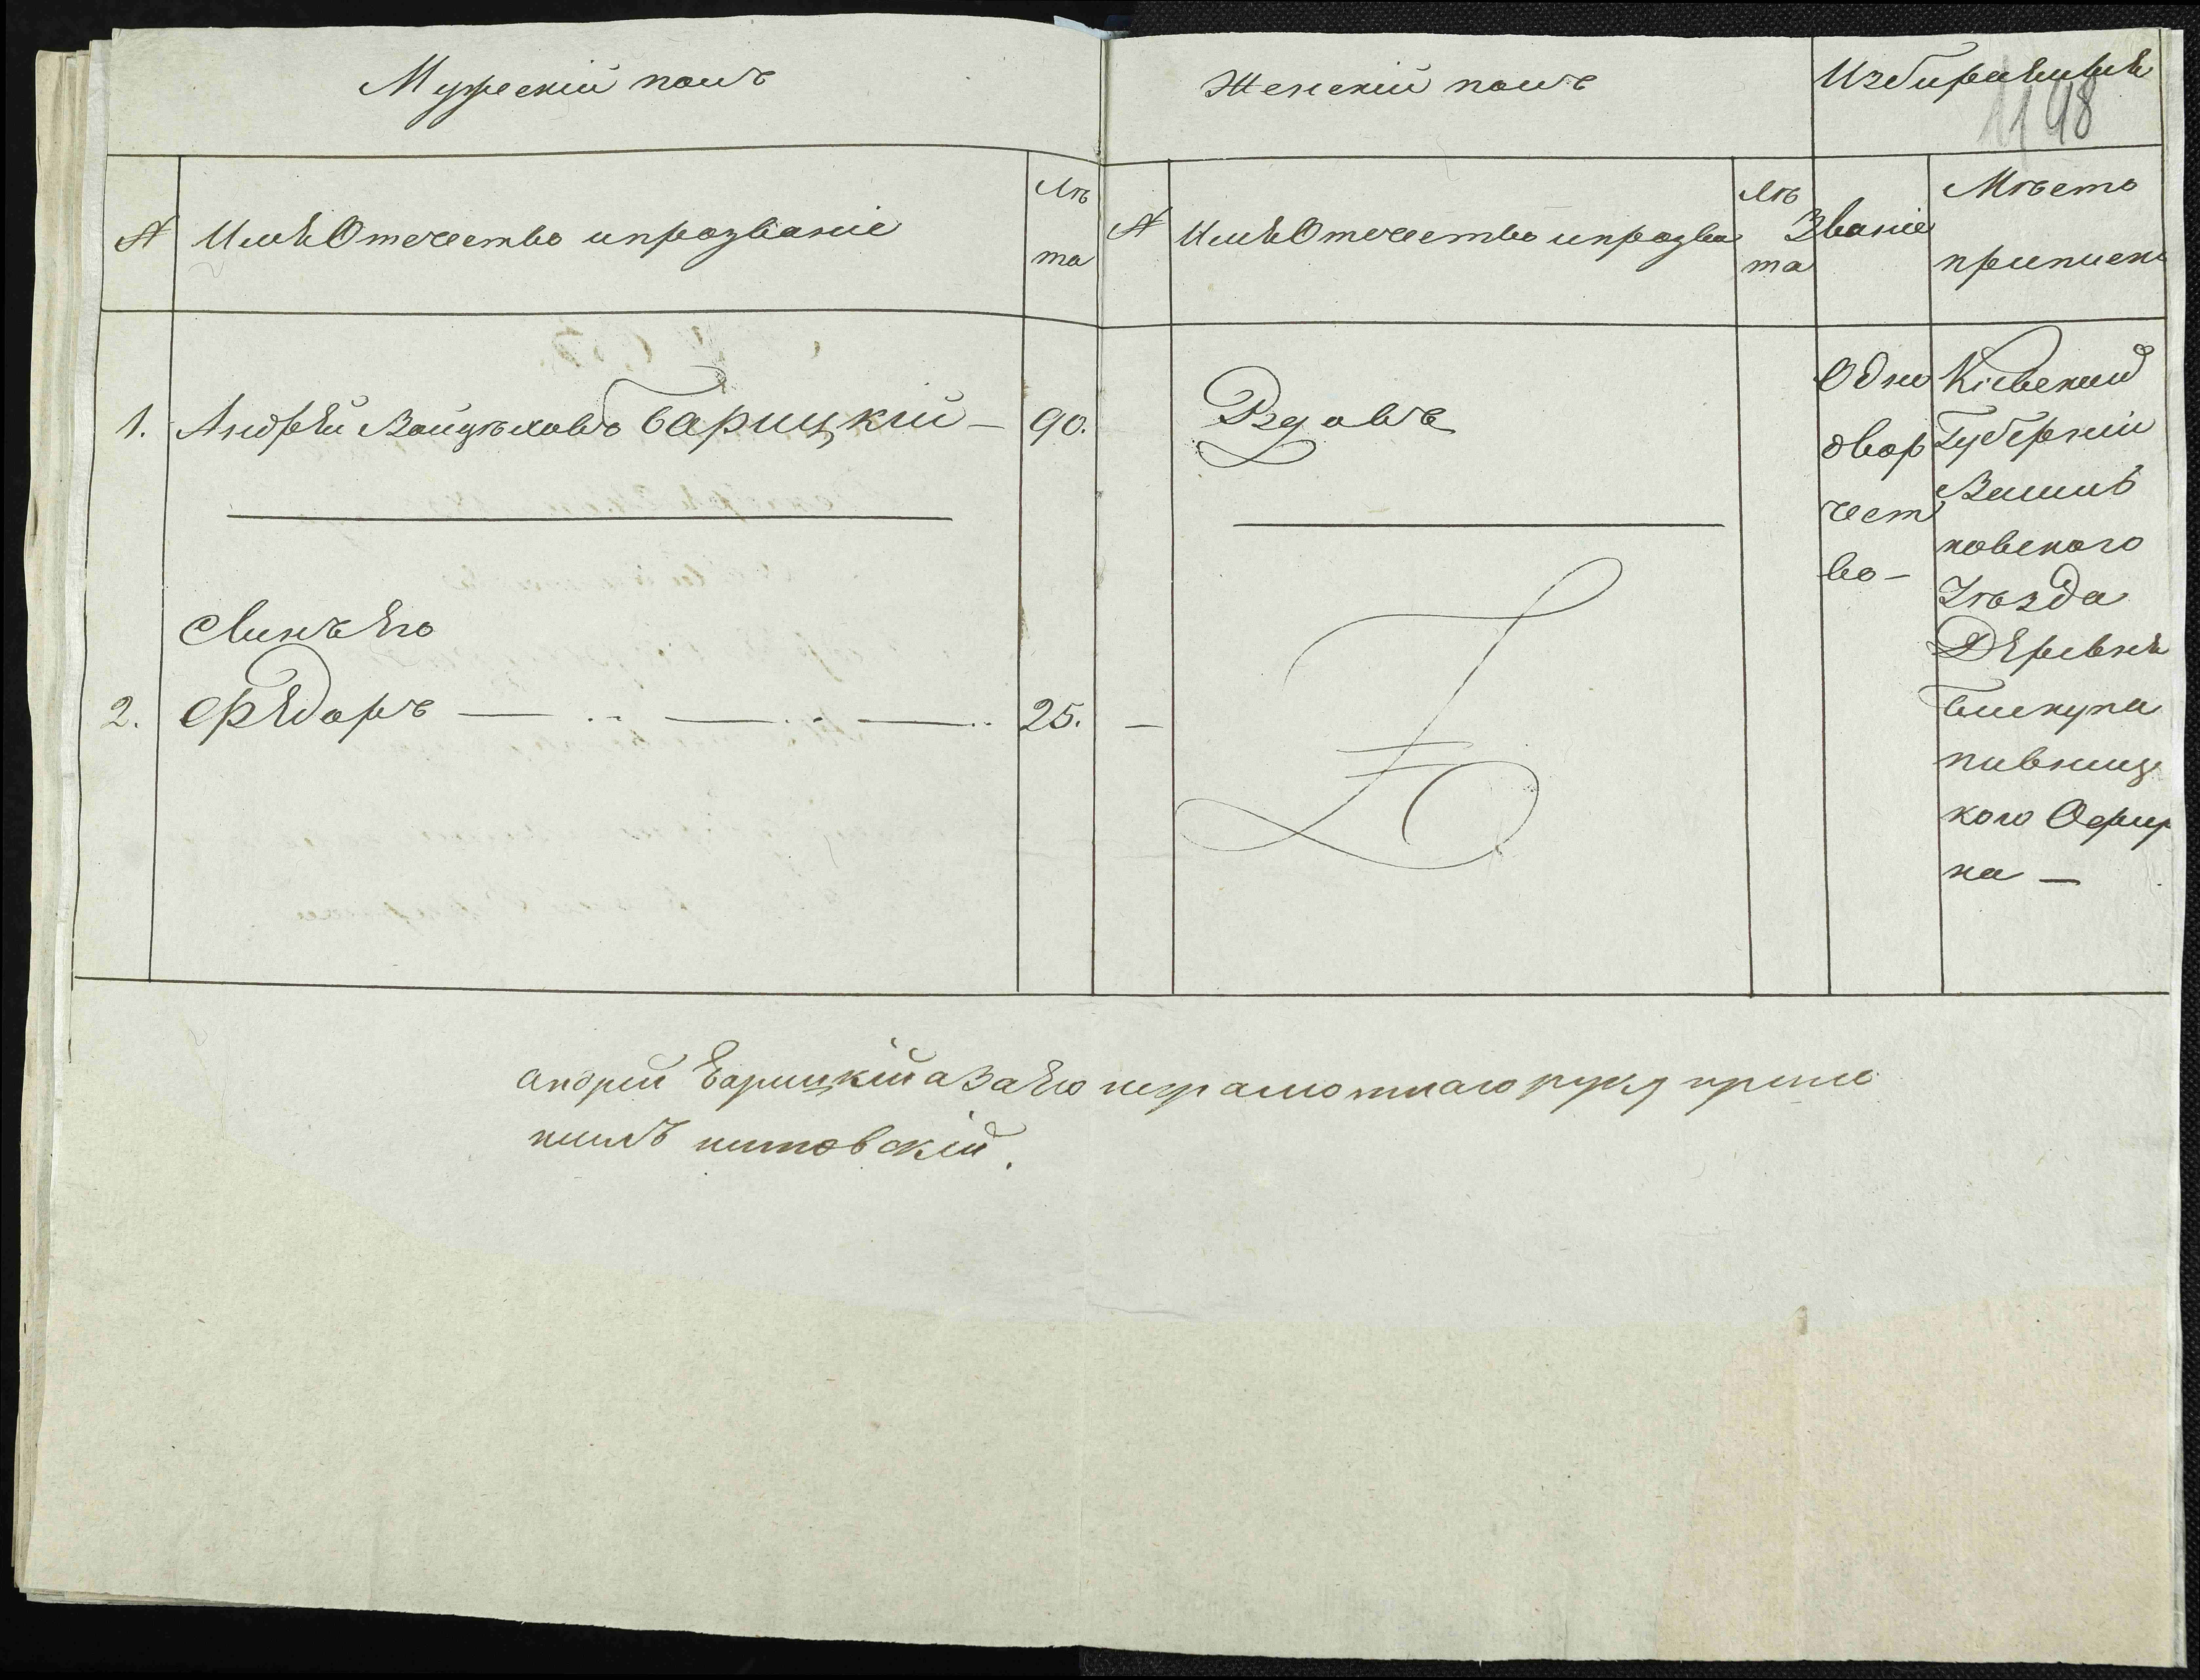 Мужескій полъ
Женскій полъ
Избираемые
98
№
Имя Отечество и прозваніе
Лѣ
та
№
Имя Отечество и прозва
Лѣ
та
Званіе
Мѣсто
приписк
1. Андрей Войцѣховъ Барицкій — 90.
Вдовъ
Одно
двор
чест
во —
Кіевской
Губерніи
Василь
ковского
Уѣзда
Деревнѣ
Пивниц
кого
ка —
Синъ Его
2. Федоръ — .. — .. — .. 25. —
андрей Барицкій а За Его неграмотнаго руку прило
жилъ